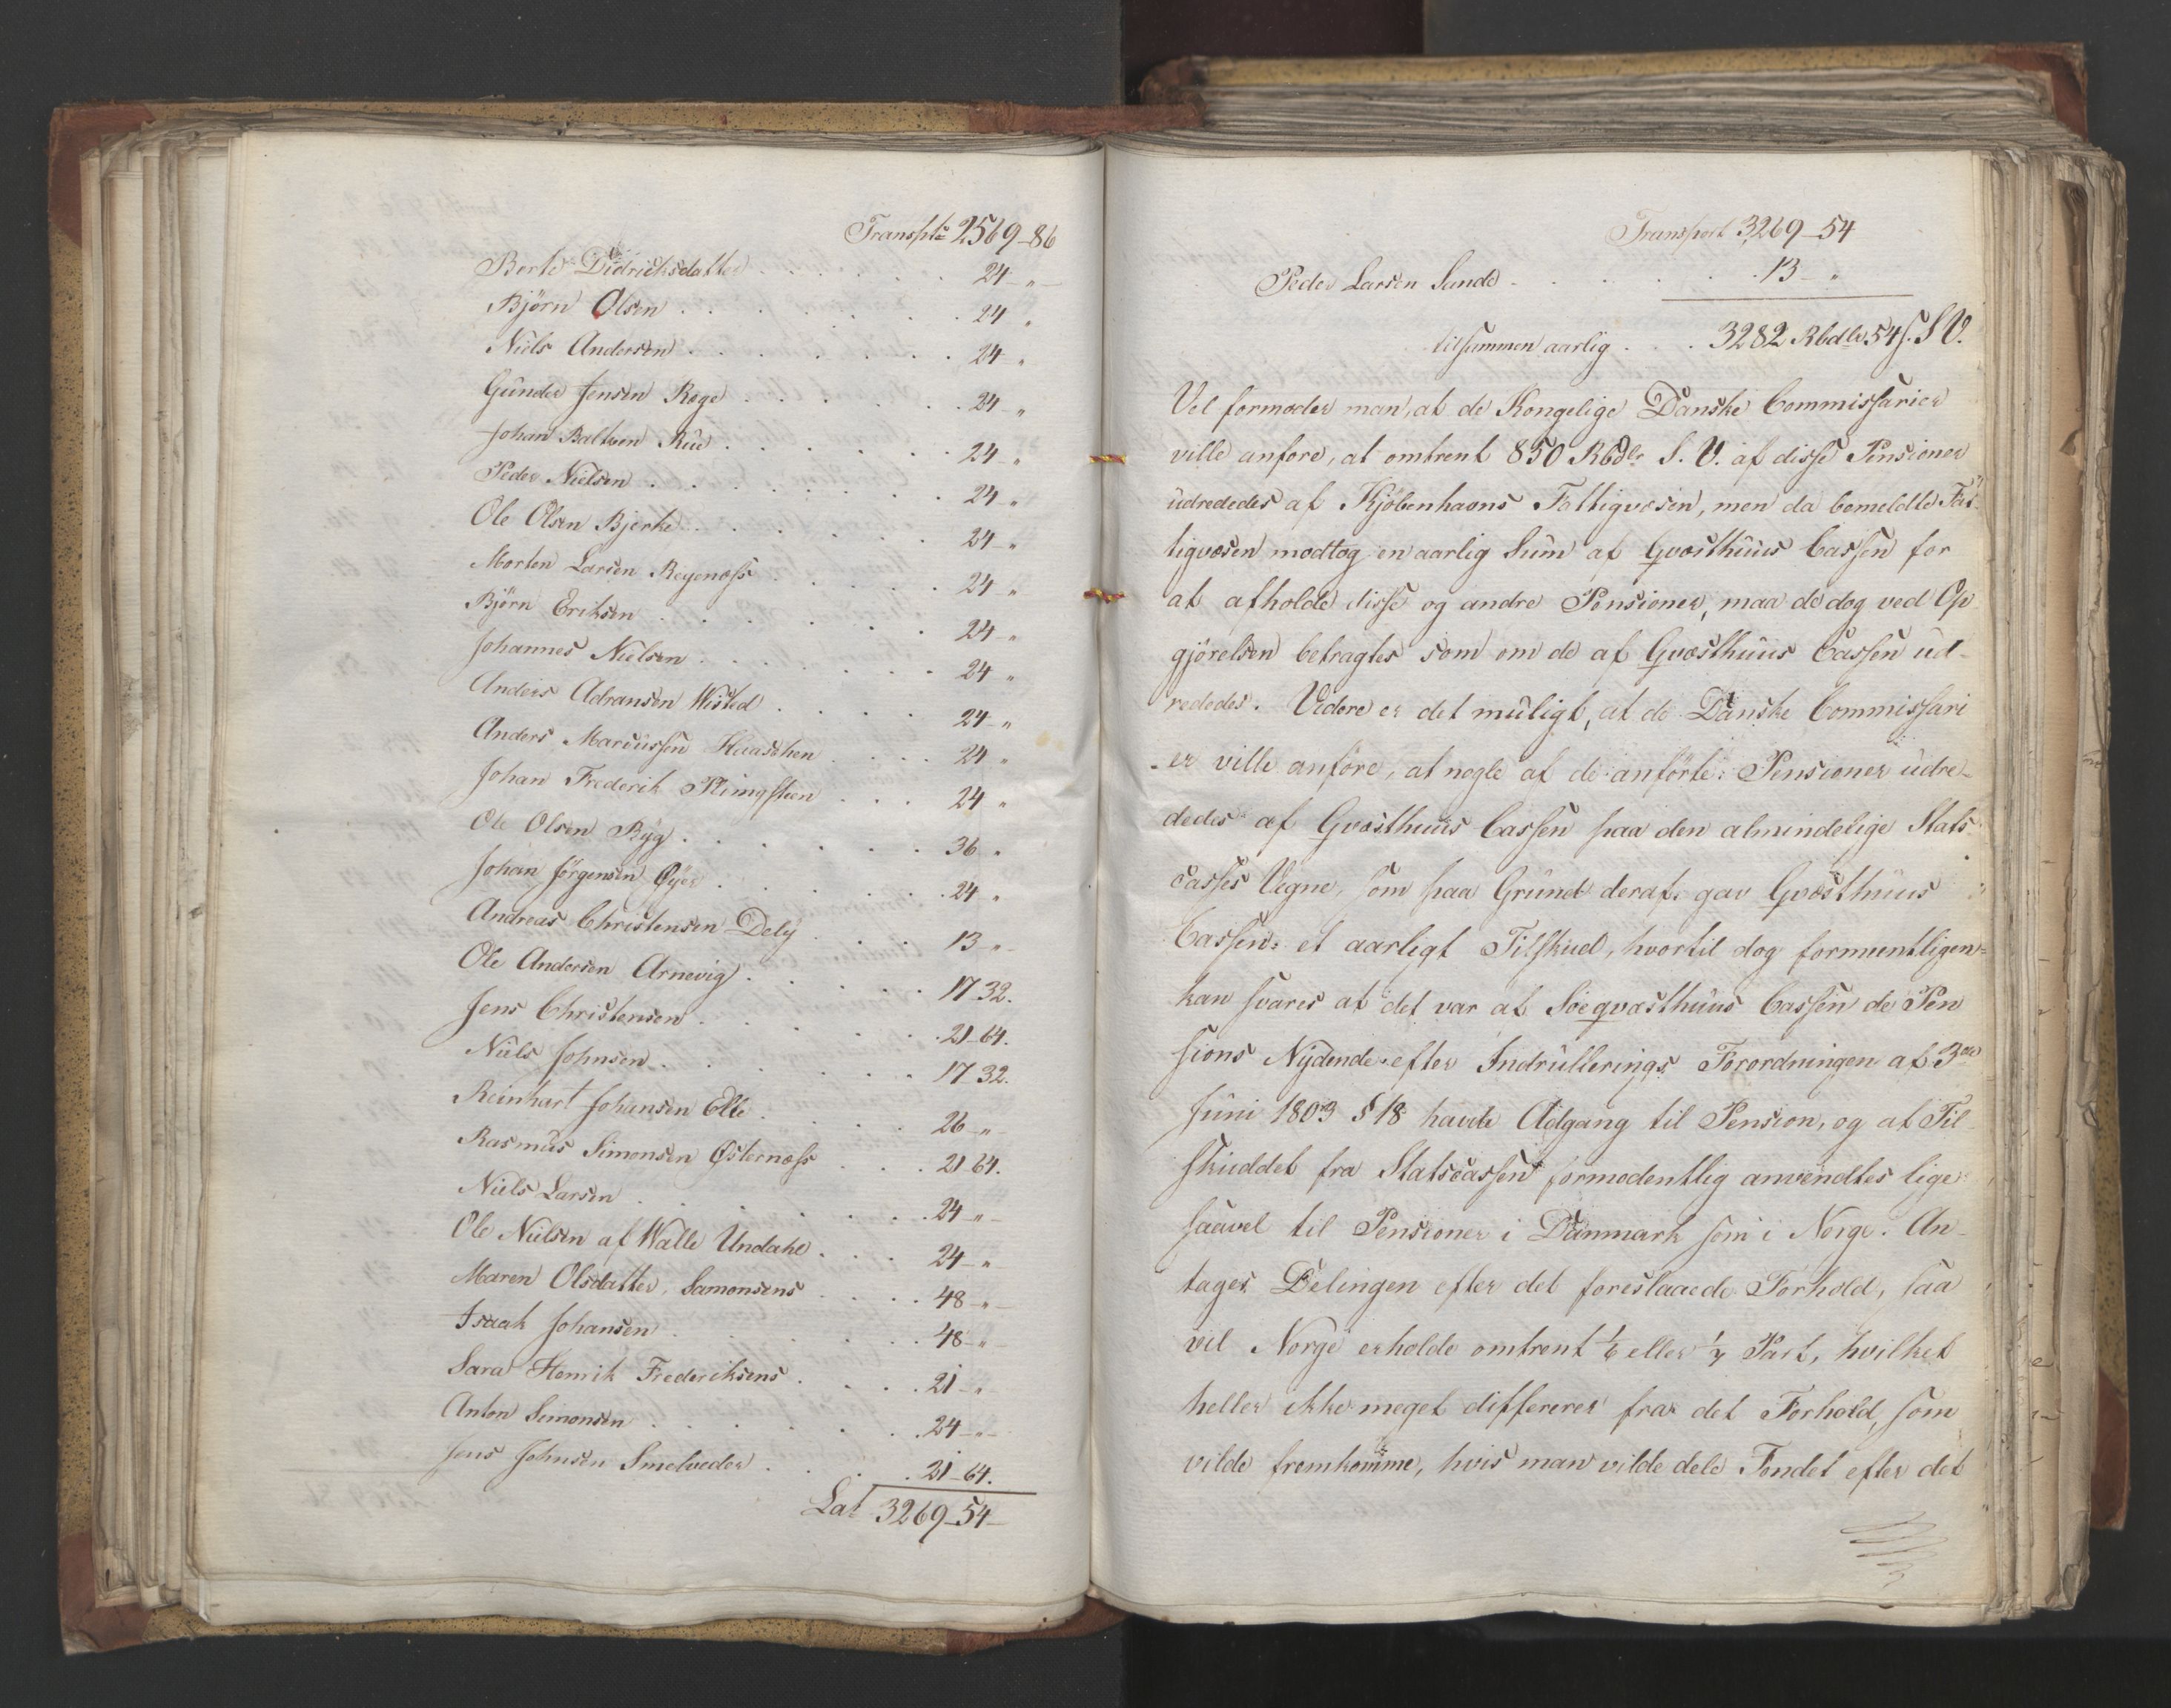 Transpt: 2569-86
Berte Didriksdatter . . . . . . 24-"-
Bjørn Olsen . . . . . . . 24 "
Niels Andersen . . . . . . . 24 "
Gunder Jensen Roge . . . . . . 24 "
Johan Baltsen Rue . . . . . . 24 "
Peder Nielsen . . . . . . . 24 "
Ole Olsen Bjerke . . . . . . 24 "
Morten Larsen Regenæss . . . . . 24 "
Bjørn Eriksen . . . . . . 24 "
Johannes Nielsen . . . . . . 24 "
Anders Adransen Wisted . . . . 24-"
Anders Marcussen Haaschen . . . . 24 "
Johan Frederik . . . 24 "
Ole Olsen Ryg . . . . . . 36 "
Johan Jørgensen Øyer . . . . . . 24 "
Andreas Christensen Dely . . . 13 "-
Ole Andersen Arnevig . . . . . 17 32.
Jens Christensen . . . . . . 21-64.
Niels Johnsen . . . . . . . 17 32.
Reinhart Johansen Elle . . . . . 26-"-
Rasmus Simonsen Østernæss . . . 21 64.
Niels Larsen . . . . . . . 24-"-
Ole Nielsen af Walle Undahl . . . 24-"-
Maren Olsdatter, Samonsens . . . . 48-"-
Isaak Johansen . . . . . . 48-"-
Sara Henrik Frederiksens . . . . 21-"-
Anton Simonsen . . . . . . 24-"-
Jens Johnsen Smelveder . . . . 21-64.
Lat 3269-54-
Transport 3269-54
Peder Larsen Sande . . . . . 13-"
tilsammen aarlig . . . 3282 Rbdlr 54 s. S V.
Vel formoder man, at de Kongelige Danske Commissarier
ville anføre, at omtrent 850 Rbdlr S. V. af disse Pensioner
udrededes af Kjøbenhavns Fattigvæsen, men da bemeldte Fat-
tigvæsen modtog en aarlig Sum af Qvæsthuus Cassen for
at afholde disse og andre Pensioner, maa de dog ved Op
gjørelsen betragtes som om de af Qvæsthuus Cassen ud-
rededes. Videre er det muligt, at de Danske Commissari
er ville anføre, at nogle af de anførte Pensioner udre-
dedes af Qvæsthuus Cassen paa den almindelige Stats
casses Vegne, som paa Grund deraf gav Qvæsthuus
Cassen et aarligt Tilskud, hvortil dog formeentligen
kan svares at det var af Søeqvæsthuus Cassen de Pen
sions Nydende efter Indrullerings Forordningen af 3die
Juni 1803 § 18 havde Adgang til Pension, og at Til
skuddet fra Statscassen formodentlig anvendtes lige
saavel til Pensioner i Danmark som i Norge. An-
tages Delingen efter det foreslaaede Forhold, saa
vil Norge erholde omtrent 1/6 eller 1/7 Part, hvilket
heller ikke meget differerer fra det Forhold, som
vilde fremkomme, hvis man vilde dele Fondet efter det